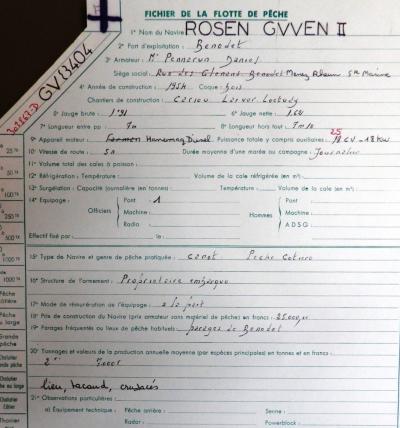 FICHIER DE LA FLOTTE DE PÊCHE
1° Nom du Navire ROSEN GWEN II
2° Port d'exploitation : Benodet
3° Armateur : Mr Pennarun Daniel
Siège social : Rue des Glénant Benodet Ste Marine
4° Année de construction : 1954 Coque : bois
Chantiers de construction : Cariou Larvor Loctudy
5° Jauge brute : 1°91 6° Jauge nette : 1,64
7° Longueur entre pp : 7m 8° Longueur hors tout : 7m10
9° Appareil moteur : Diesel Puissance totale y compris auxiliaires : 25 18 CV - 18 KW
10° Vitesse de route : 5n Durée moyenne d'une marée ou campagne : Journalier
11° Volume total des cales à poisson :
12° Réfrigération : Température : Volume de la cale réfrigérée (en m³) :
13° Surgélation : Capacité journalière (en tonnes) : Température : Volume de la cale (en m³) :
14° Equipage : Pont : 1 Pont :
Officiers Machine : Hommes Machine :
Radio : A D S G :
Effectif fixé par : le :
15° Type de Navire et genre de pêche pratiquée : canot Pêche Cotière
16° Structure de l'armement : Propriétaire embarqué
17° Mode de rémunération de l'équipage : à la part
18° Prix de construction du Navire (prix armateur sans matériel de pêche) en francs : 25.000,00
19° Parages fréquentés ou lieux de pêche habituels : parages de Benodet
20° Tonnages et valeurs de la production annuelle moyenne (par espèces principales) en tonnes et en francs :
lieu, tacaud, crustacés
21° Observations particulières :
a) Équipement technique : Pêche arrière : Senne :
Radar : Powerblock :
GV 283404
25 Tx
50 Tx
100 Tx
250 Tx
500 Tx
1000 Tx
Pêche
côtière
Pêche
au large
Grande
pêche
Chalutier
Chalutier
Chalutier
Thonier